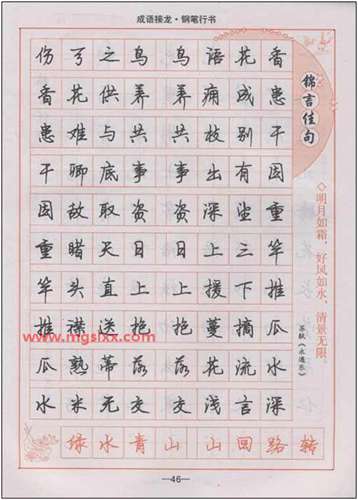 成语接龙·钢笔行书
伤弓之鸟鸟语花香
香花供养养痈成患
患难与共共枝别干
干卿底事事出有因
因敌取资资深望重
重睹天日日上三竿
竿头直上上援下推
推襟送抱抱蔓摘瓜
瓜熟蒂落落花流水
水米无交交浅言深
绿水青山山回路转
锦言佳句
◇明月如霜,好风如水,清景无限。
苏轼《永遇乐》
www.mgsixx.com
—46—